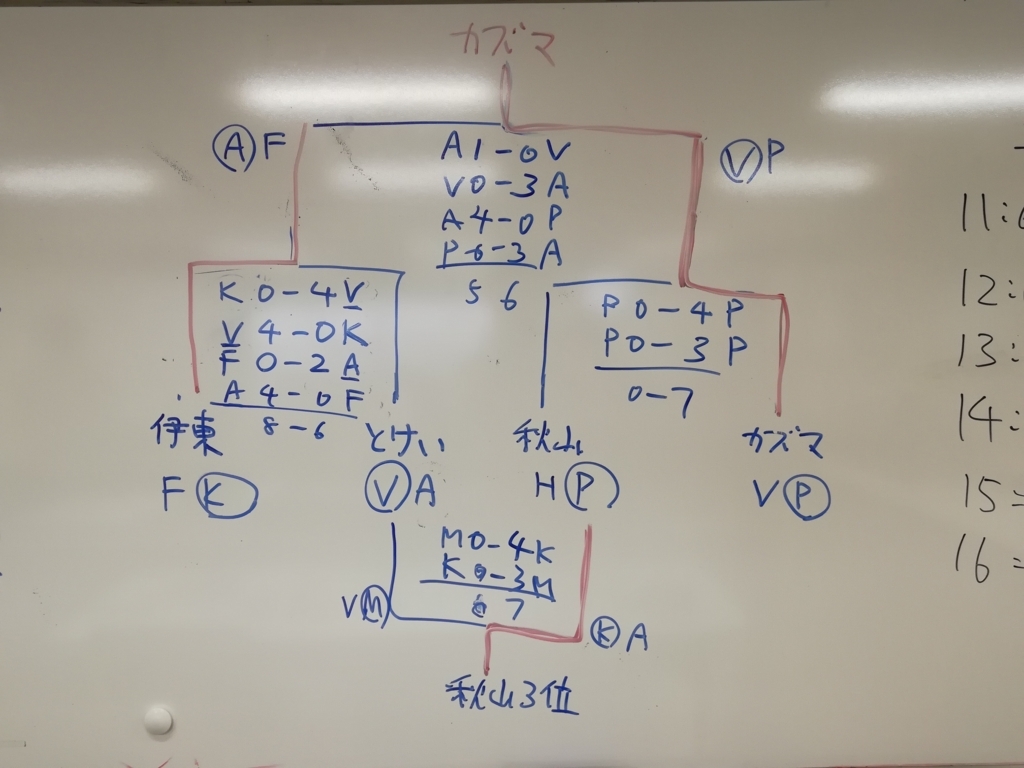 カズマ
A F
A 1-0 V
V 0-3 A
A 4-0 P
P 6-3 A
5 6
V P
K 0-4 V
V 4-0 K
F 0-2 A
A 4-0 F
8-6
P 0-4 P
P 0-3 P
0-7
伊東
とけい
秋山
カズマ
F K
V A
H P
V P
M 0-4 K
K 0-3 M
0 7
V M
K A
秋山3位
11:
12:
13:
14:
15=
16=